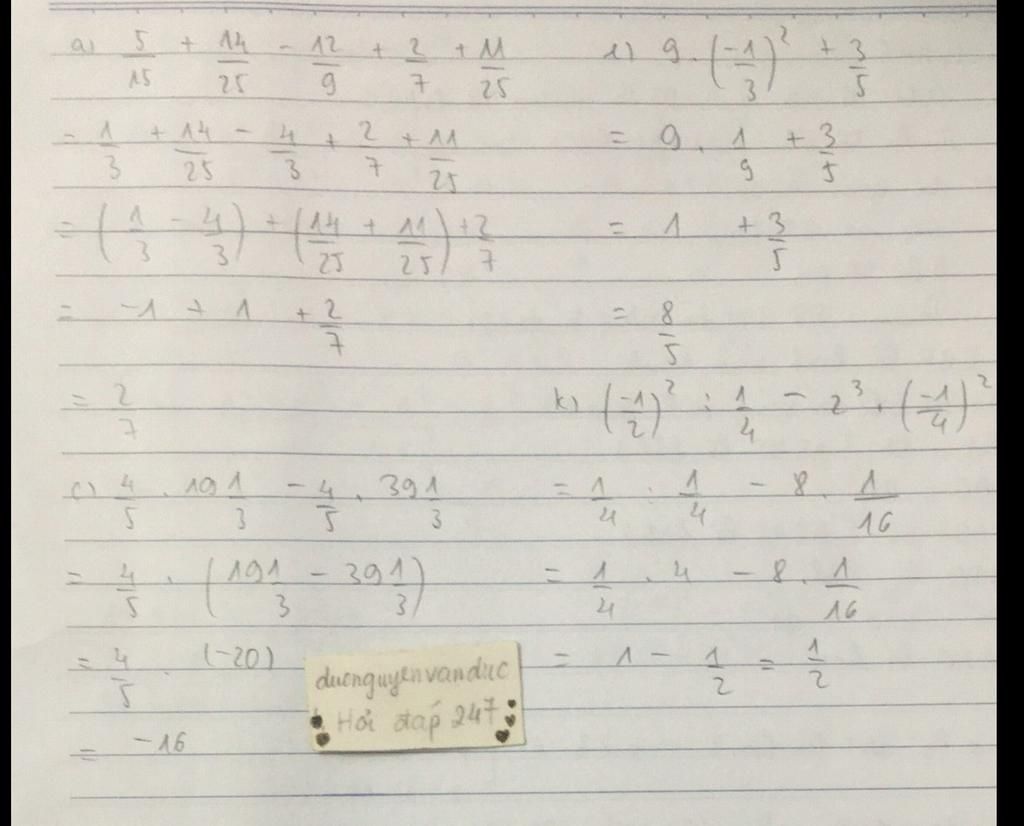 a) 5/15 + 14/25 - 12/9 + 2/7 + 11/25
= 1/3 + 14/25 - 4/3 + 2/7 + 11/25
= (1/3 - 4/3) + (14/25 + 11/25) + 2/7
= -1 + 1 + 2/7
= 2/7
c) 4/5 . 19 1/3 - 4/5 . 39 1/3
= 4/5 . (19 1/3 - 39 1/3)
= 4/5 . (-20)
= -16
e) 9 . (-1/3)² + 3/5
= 9 . 1/9 + 3/5
= 1 + 3/5
= 8/5
k) (-1/2)² : 1/4 - 2³ . (-1/4)²
= 1/4 : 1/4 - 8 . 1/16
= 1/4 . 4 - 8 . 1/16
= 1 - 1/2 = 1/2
ducnguyenvanduc
Hỏi đáp 247